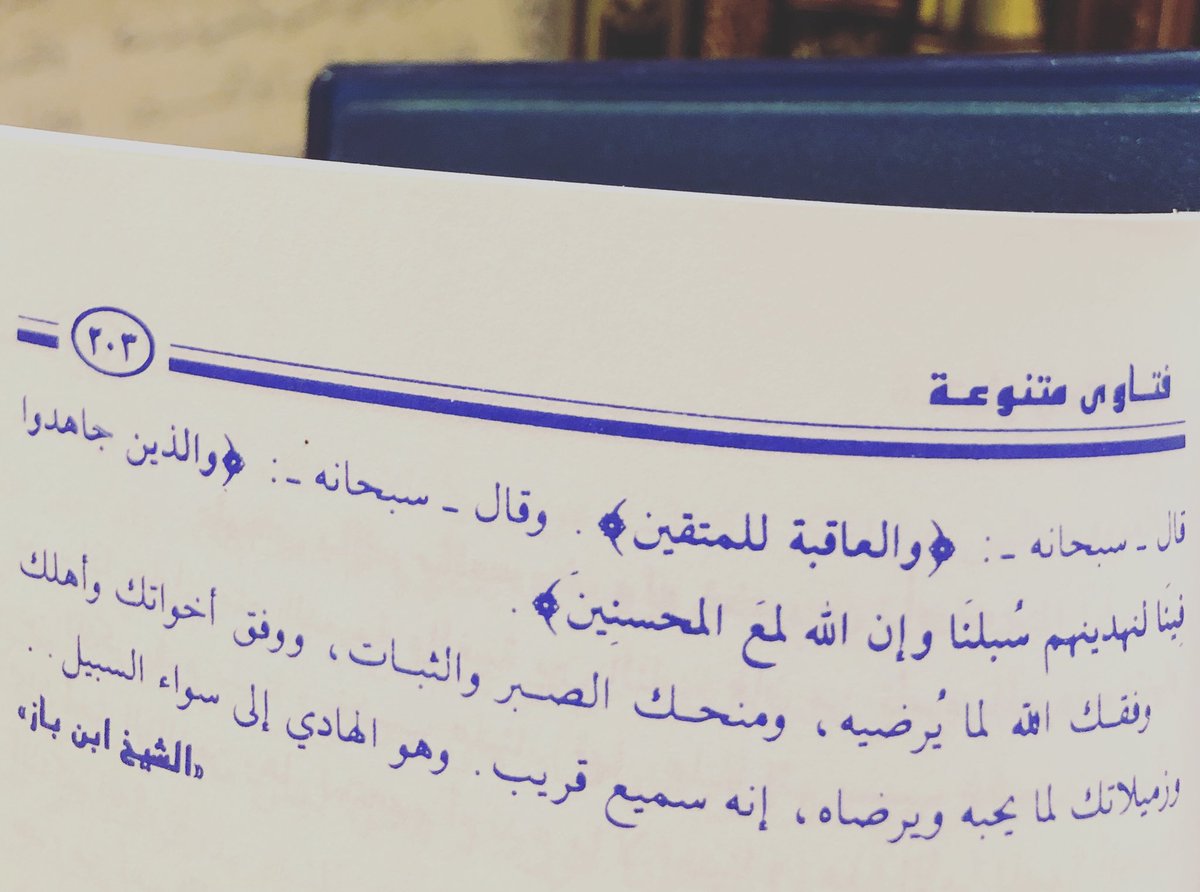 فتاوى متنوعة ٢٠٣
قال ـ سبحانه ـ: ﴿والعاقبة للمتقين﴾. وقال ـ سبحانه ـ: ﴿والذين جاهدوا
فِينَا لنهدينهم سُبلنَا وإن الله لمعَ المحسنِينَ﴾.
وفقك الله لما يُرضيه، ومنحك الصبر والثبات، ووفق أخواتك وأهلك
وزميلاتك لما يحبه ويرضاه، إنه سميع قريب. وهو الهادي إلى سواء السبيل..
«الشيخ ابن باز»